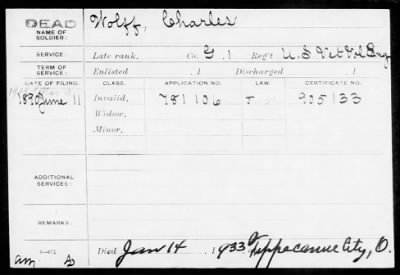 DEAD
NAME OF SOLDIER: Wolff, Charles
SERVICE: Late rank, Co. G. 1 Reg't U.S. Vet Vol Eng
TERM OF SERVICE: Enlisted , 1 Discharged , 1
DATE OF FILING. CLASS. APPLICATION NO. LAW. CERTIFICATE NO.
1890 June 11 Invalid, 781106 J 905133
Widow,
Minor,
ADDITIONAL SERVICES:
REMARKS:
Died Jan 14, 1933 at Tippecanoe City, O.